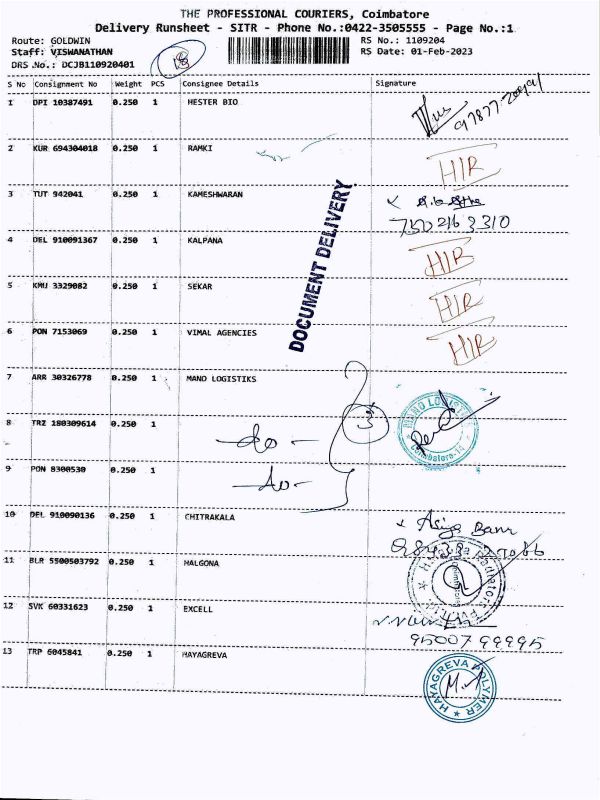 THE PROFESSIONAL COURIERS, Coimbatore
Delivery Runsheet - SITR - Phone No.:0422-3505555 - Page No.:1
Route: GOLDWIN RS No.: 1109204
Staff: VISWANATHAN RS Date: 01-Feb-2023
DRS No.: DCJB110920401 18
S No Consignment No Weight PCS Consignee Details Signature
1 DPI 10387491 0.250 1 HESTER BIO
2 KUR 694304018 0.250 1 RAMKI HIR
3 TUT 942041 0.250 1 KAMESHWARAN
7502163310
4 DEL 910091367 0.250 1 KALPANA HIR
5 KMU 3329082 0.250 1 SEKAR HIR
6 PON 7153069 0.250 1 VIMAL AGENCIES HIR
DOCUMENT DELIVERY
7 ARR 30326778 0.250 1 MANO LOGISTIKS
8 TRZ 180309614 0.250 1 -do- 3
9 PON 8300530 0.250 1 -do-
10 DEL 910090136 0.250 1 CHITRAKALA Asiya Banu
11 BLR 5500503792 0.250 1 MALGONA
12 SVK 60331623 0.250 1 EXCELL
9500799995
13 TRP 6045841 0.250 1 HAYAGREVA
HAYAGREVA POLYMER